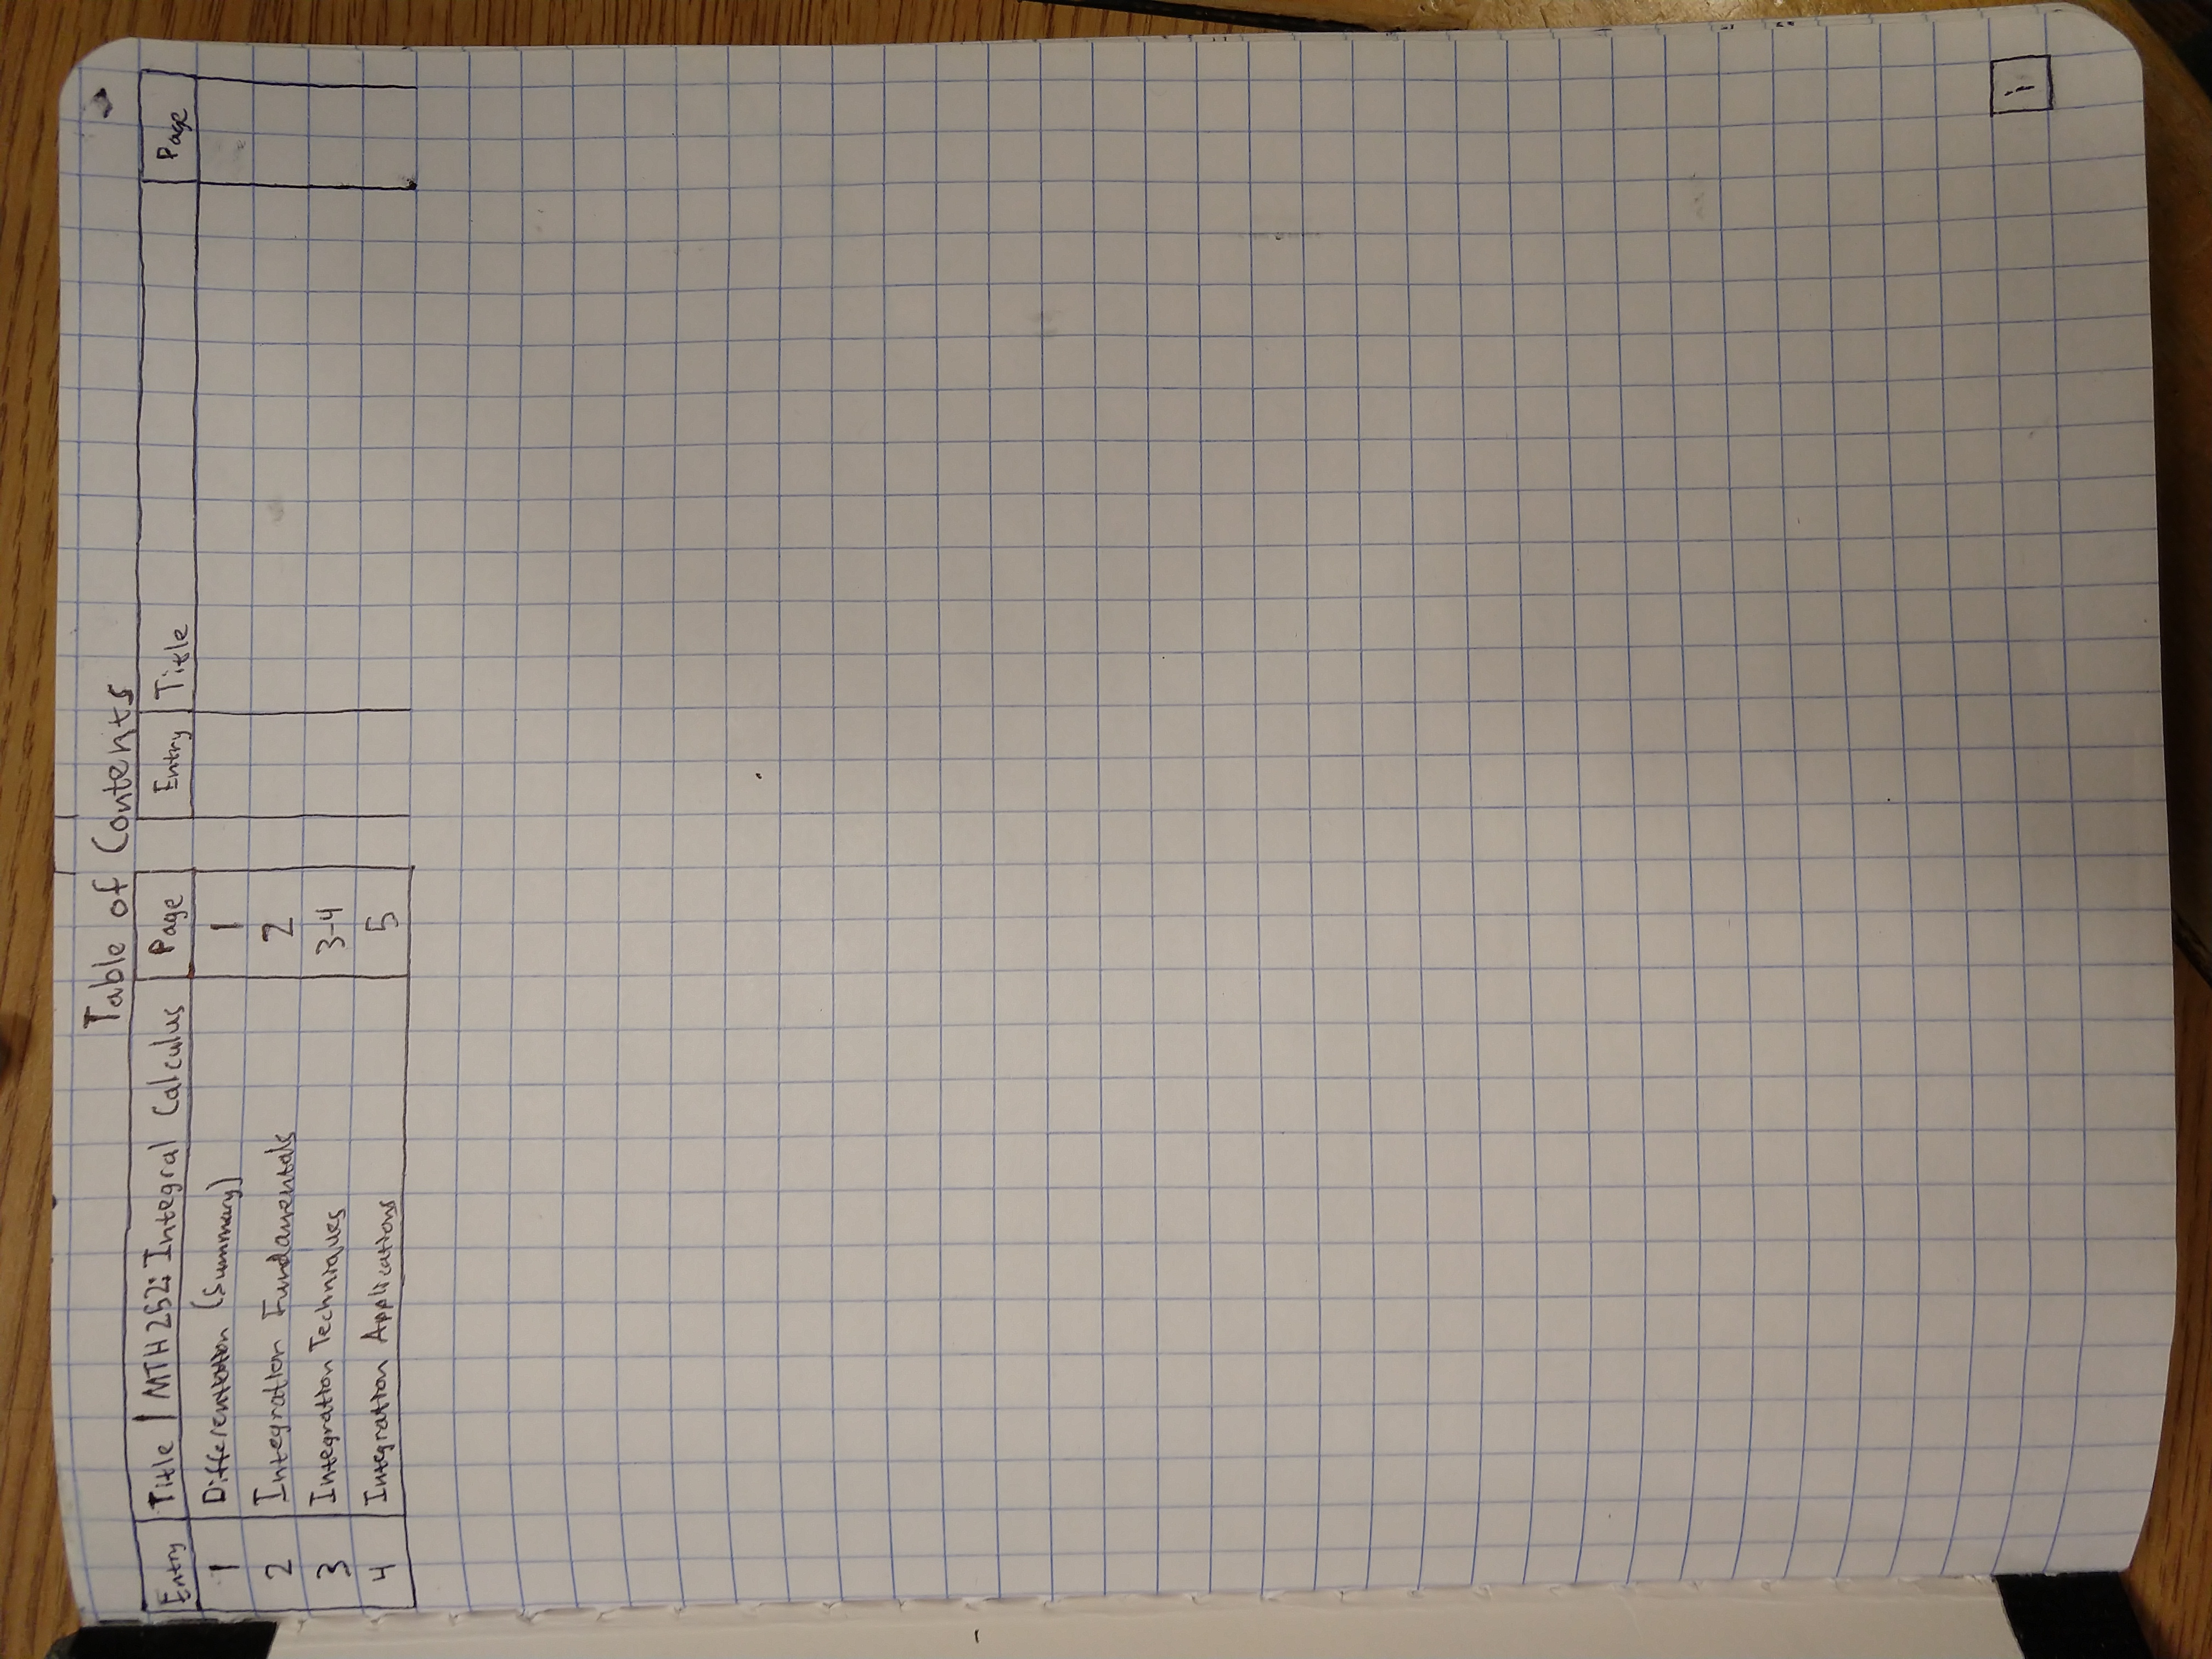 Table of Contents
Entry Title | MTH 252: Integral Calculus Page Entry Title Page
1 Differentiation (Summary) 1
2 Integration Fundamentals 2
3 Integration Techniques 3-4
4 Integration Applications 5
i